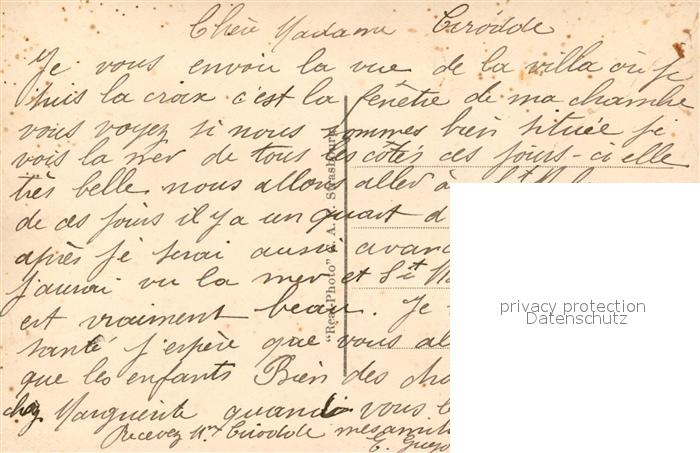 Chère Madame Cirodde
Je vous envou la vue de la villa où je
suis la croix c'est la fenêtre de ma chambre
vous voyez si nous sommes bien située je
vois la mer de tous les côtés ces jours-ci elle
très belle nous allons aller à St
de ces jours il y a un quart d
après je serai aussi avanc
j'aurai vu la mer et St M
est vraiment beau. Je
santé j'espère que vous al
que les enfants Bien des cho
chez Marguerite quand vous l
Recevez Mme Cirodde mes amit
E.
"Real-Photo" C. A. P. Strasbourg
privacy protection
Datenschutz